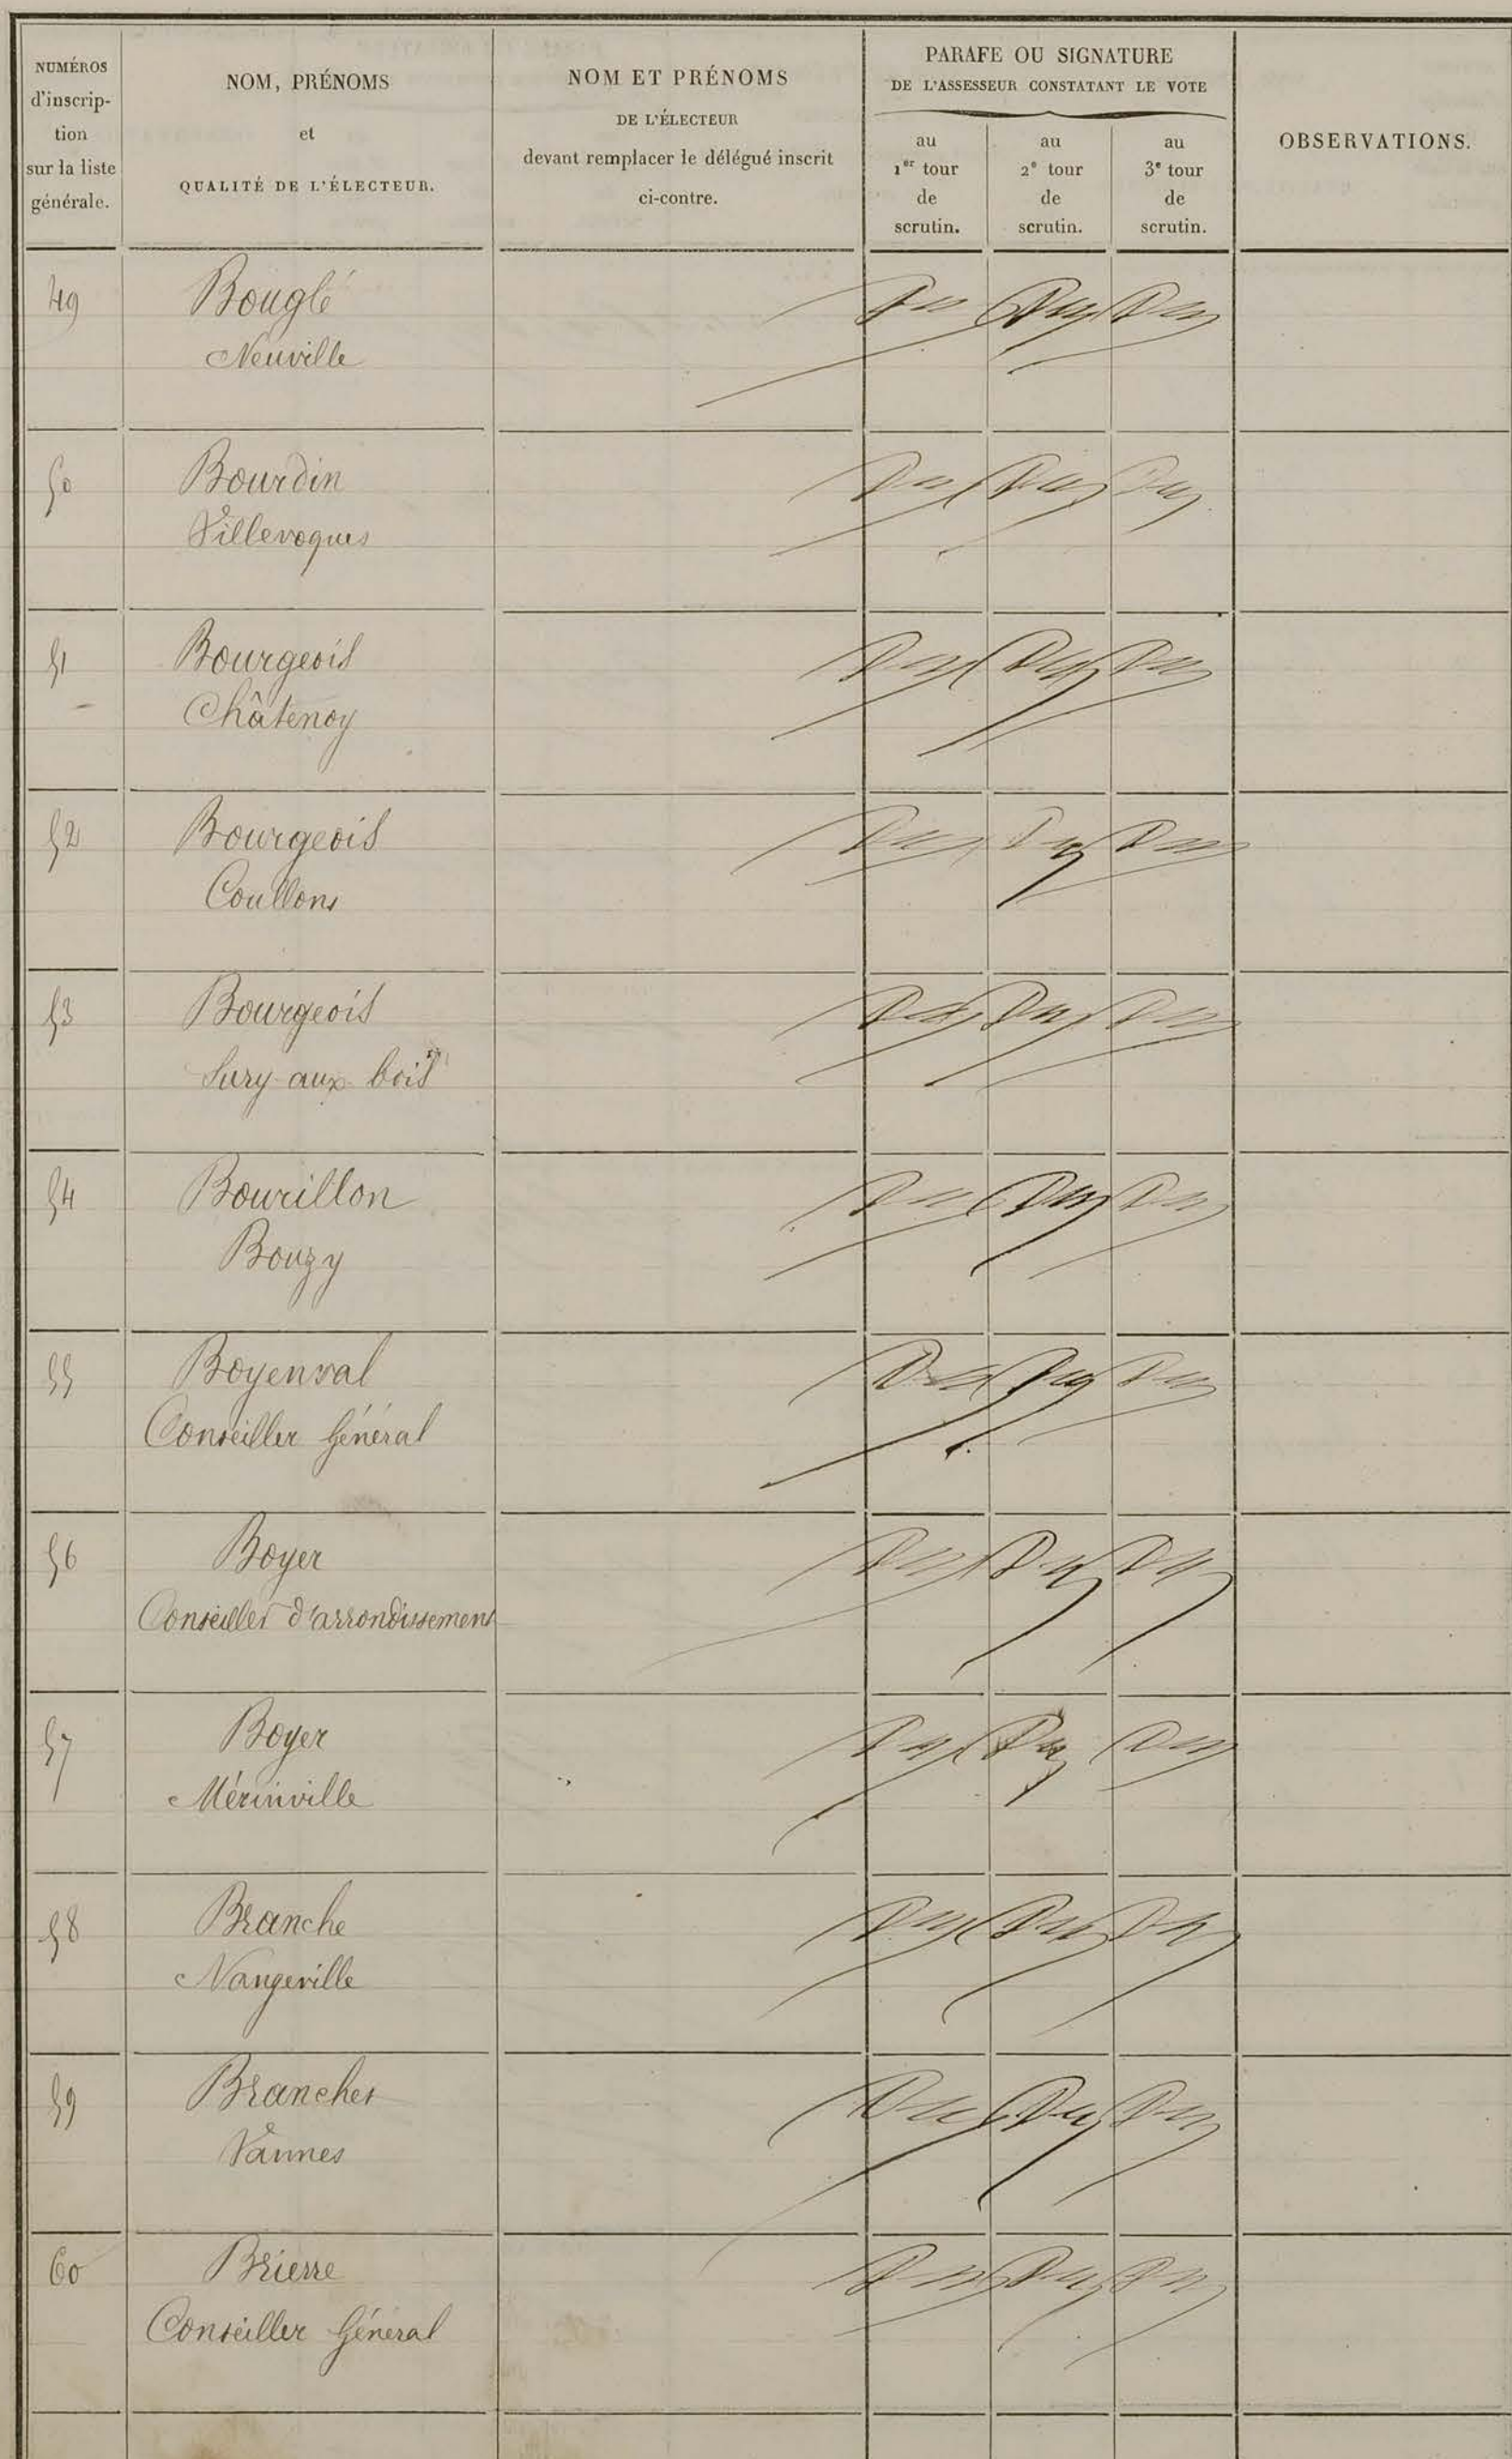 NUMÉROS
d'inscrip-
tion
sur la liste
générale.
NOM, PRÉNOMS
et
QUALITÉ DE L'ÉLECTEUR.
NOM ET PRÉNOMS
DE L'ÉLECTEUR
devant remplacer le délégué inscrit
ci-contre.
PARAFE OU SIGNATURE
DE L'ASSESSEUR CONSTATANT LE VOTE
au
1er tour
de
scrutin.
au
2e tour
de
scrutin.
au
3e tour
de
scrutin.
OBSERVATIONS.
49 Bouglé
Neuville
50 Bourdin
Villevoques
51 Bourgeois
Châtenoy
52 Bourgeois
Coullons
53 Bourgeois
Sury aux bois
54 Bourillon
Bouzy
55 Boyenval
Conseiller Général
56 Boyer
Conseiller d'arrondissement
57 Boyer
Mérinville
58 Branche
Nangeville
59 Branches
Vannes
60 Brierre
Conseiller Général